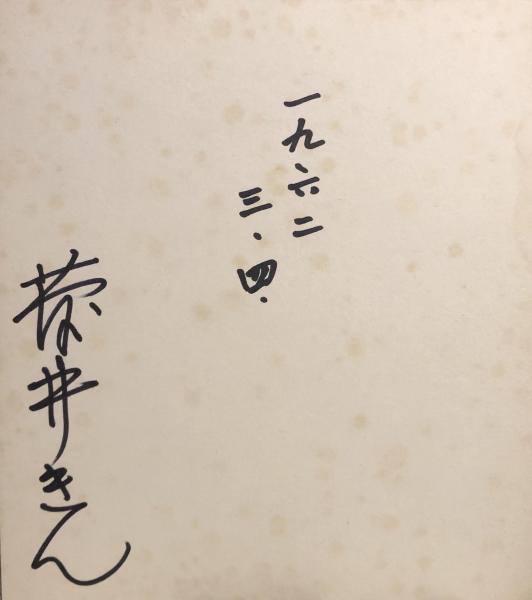 一九六二
三・四・
菅井きん